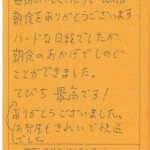 朝食をありがとうございます
ハードな日程でしたが、
朝食のおかげでしのぐ
ことができました。
てびち 最高です!
ありがとうございました。
お部屋もきれいで快適
でした